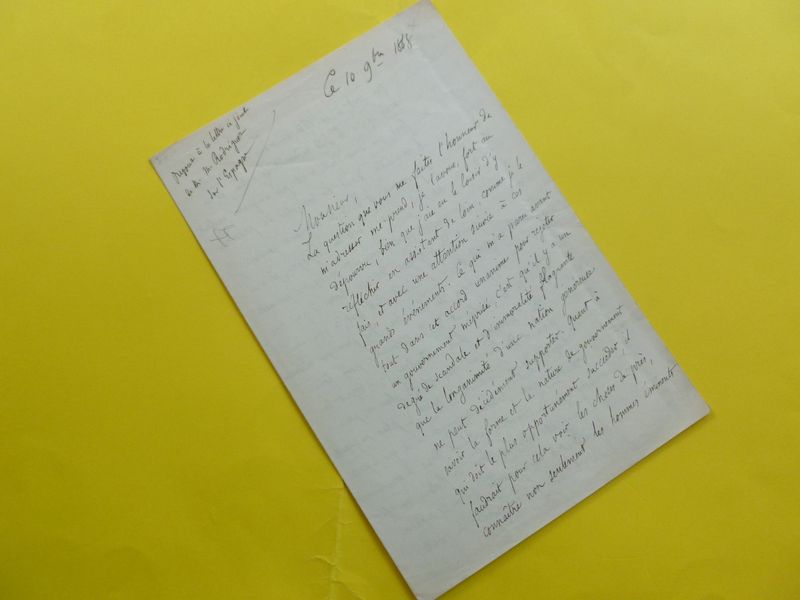 Ce 10 9bre 1868
réponse à la lettre ci jointe
de M. M. Rodrigues
sur l'Espagne
Monsieur,
La question que vous me faites l'honneur de
m'adresser me prend, je l'avoue, fort au
dépourvu, bien que j'aie eu le loisir d'y
réfléchir en assistant de loin, comme je le
fais, et avec une attention suivie à ces
grands événements. Ce qui m'a paru avant
tout dans cet accord unanime pour rejeter
un gouvernement méprisé, c'est qu'il y a un
degré de scandale et d'immoralité flagrante
que la longanimité d'une nation généreuse
ne peut décidément supporter. Quant à
savoir la forme et la nature de gouvernement
qui doit le plus opportunément succéder, il
faudrait pour cela voir les choses de près,
connaître non seulement les hommes éminents